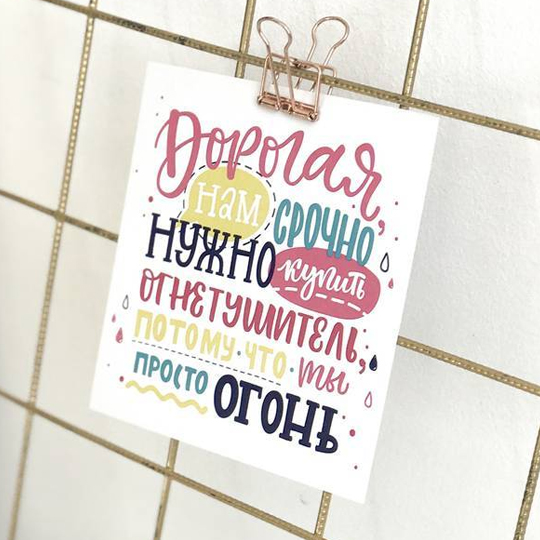 Дорогая,
нам срочно
нужно купить
огнетушитель,
потому·что·ты
просто огонь